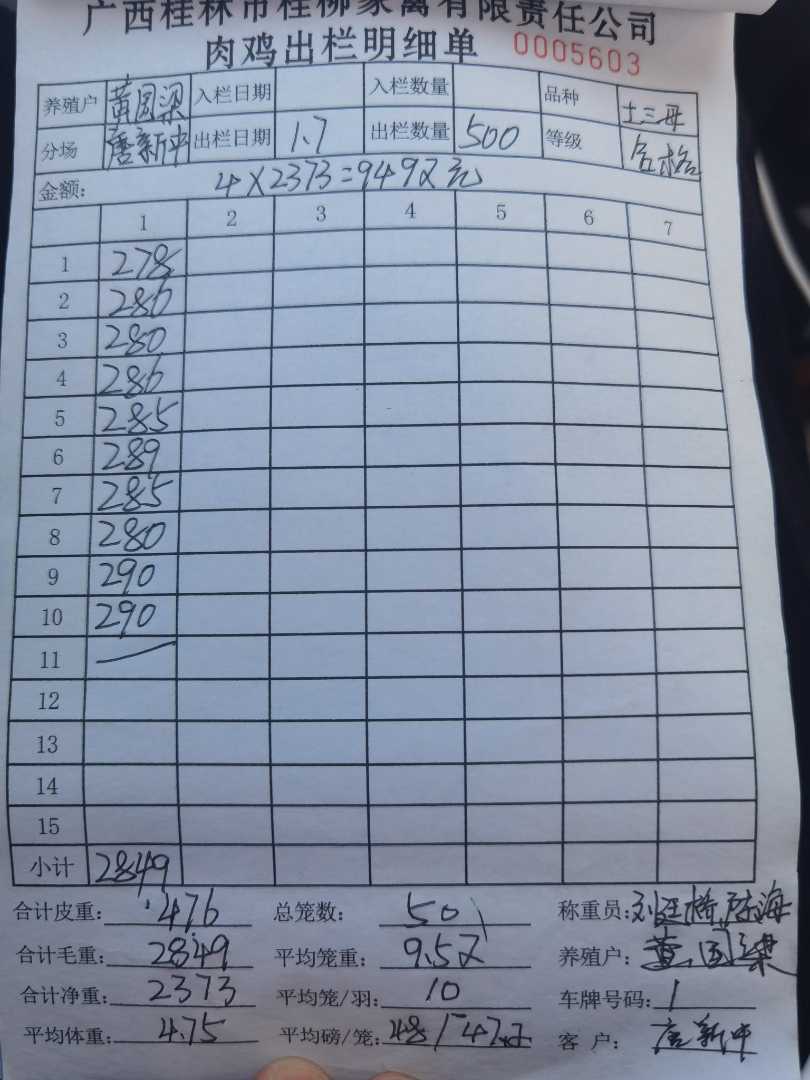 广西桂林市桂柳家禽有限责任公司
肉鸡出栏明细单 0005603
养殖户 黄国梁 入栏日期 入栏数量 品种 土三号
分场 唐新中 出栏日期 1.7 出栏数量 500 等级 合格
金额: 4×2373=9492元
1 2 3 4 5 6 7
1 278
2 286
3 280
4 286
5 285
6 289
7 285
8 280
9 290
10 290
11
12
13
14
15
小计 2849
合计皮重: 476 总笼数: 50 称重员:
合计毛重: 2849 平均笼重: 9.52 养殖户: 黄国梁
合计净重: 2373 平均笼/羽: 10 车牌号码: 1
平均体重: 4.75 平均磅/笼: 48 客 户: 唐新中